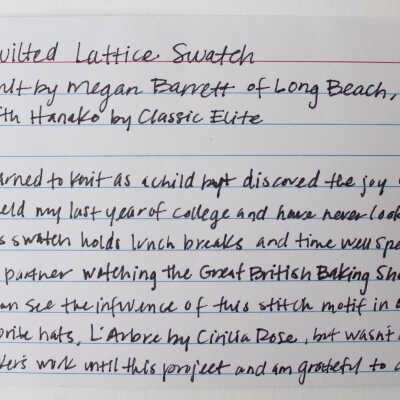 uilted Lattice Swatch
nit by Megan Barrett of Long Beach,
th Hanako by Classic Elite
arned to knit as a child but discoved the joy
eld my last year of college and have never look
s swatch holds lunch breaks and time well spe
partner watching the Great British Baking Sho
an see the influence of this stitch motif in
orite hats, L'Arbre by Cirilia Rose, but wasn't
ker's work until this project and am grateful to